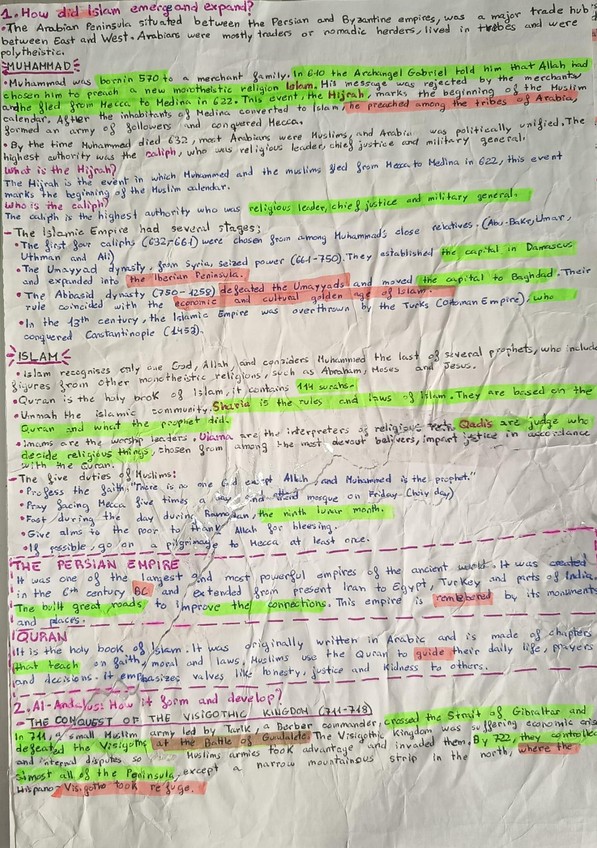 1. How did Islam emerge and expand?
• The Arabian Peninsula situated between the Persian and Byzantine empires, was a major trade hub
between East and West. Arabians were mostly traders or nomadic herders, lived in tribes and were
polytheistic.
MUHAMMAD
• Muhammad was born in 570 to a merchant family. In 610 the Archangel Gabriel told him that Allah had
chosen him to preach a new monotheistic religion Islam. His message was rejected by the merchants
and he fled from Mecca to Medina in 622. This event, the Hijrah, marks the beginning of the Muslim
calendar. After the inhabitants of Medina converted to Islam, he preached among the tribes of Arabia,
formed an army of followers and conquered Mecca.
• By the time Muhammed died 632, most Arabians were Muslims, and Arabia was politically unified. The
highest authority was the caliph, who was religious leader, chief justice and military general.
What is the Hijrah?
The Hijrah is the event in which Muhammed and the muslims fled from Mecca to Medina in 622, this event
marks the begining of the Muslim calendar.
Who is the caliph?
The caliph is the highest authority who was religious leader, chief justice and military general.
- The Islamic Empire had several stages:
• The first four caliphs (632-661) were chosen from among Muhammad's close relatives. (Abu-Bakr, Umar,
Uthman and Ali)
• The Umayyad dynasty, from Syria, seized power (661-750). They established the capital in Damascus
and expanded into the Iberian Peninsula.
• The Abbasid dynasty (750-1258) defeated the Umayyads and moved the capital to Baghdad. Their
rule coincided with the economic and cultural golden age of Islam.
• In the 13th century, the Islamic Empire was overthrown by the Turks (Ottoman Empire), who
conquered Constantinople (1453).
ISLAM
• Islam recognises only one God, Allah, and considers Muhammed the last of several prophets, who include
figures from other monotheistic religions, such as Abraham, Moses and Jesus.
• Quran is the holy book of Islam, it contains 114 surahs.
• Ummah the islamic community. Sharia is the rules and laws of Islam. They are based on the
Quran and what the prophet did.
• Imams are the worship leaders. Ulama are the interpreters of religious Qadis are judge who
decide religious things, chosen from among the most devout belivers, impart justice in accordance
with the Quran.
- The five duties of Muslims:
• Profess the faith, "There is no one God except Allah and Muhammed is the prophet."
• Pray facing Mecca five times a day and mosque on Friday
• Fast during the day during Ramadan, the ninth lunar month.
• Give alms to the poor to thank Allah for bleesing.
• If possible, go on a pilgrimage to Mecca at least once.
THE PERSIAN EMPIRE
It was one of the largest and most powerful empires of the ancient world. It was created
in the 6th century BC and extended from present Iran to Egypt, Turkey and parts of India.
The built great roads to improve the connections. This empire is remembered by its monuments
and places.
QURAN
It is the holy book of Islam. It was originally written in Arabic and is made of chapters
that teach on faith, moral and laws. Muslims use the Quran to guide their daily life, prayers
and decisions. it emphasizes values like honesty, justice and kidness to others.
2. Al-Andalus: How it form and develop?
- THE CONQUEST OF THE VISIGOTHIC KINGDOM (711-718)
In 711, a small Muslim army led by Tarik, a Berber commander, crossed the Strait of Gibraltar and
defeated the Visigoths at the Battle of Guadalete. The Visigothic Kingdom was suffering economic
and internal disputes so Muslims armies took advantage and invaded them. By 722, they controlled
almost all of the Peninsula, except a narrow mountainous strip in the north, where the
Hispano-Visigoths took refuge.